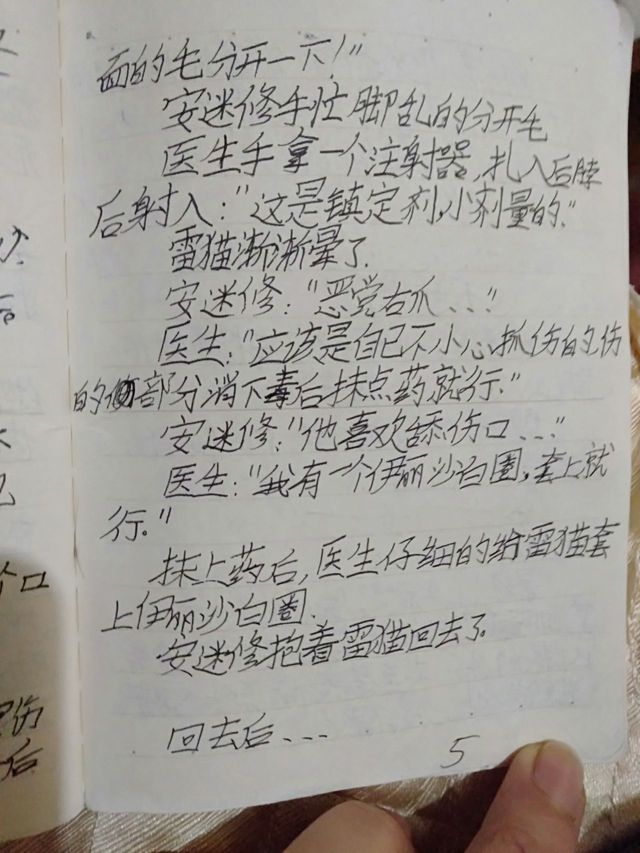 面的毛分开一下！"
安迷修手忙脚乱的分开毛
医生手拿一个注射器，扎入后脖
后射入："这是镇定剂，小剂量的."
雷猫渐渐晕了.
安迷修："恶党右爪..."
医生："应该是自己不小心抓伤的伤
的部分消下毒后抹点药就行."
安迷修："他喜欢舔伤口..."
医生："我有一个伊丽沙白圈，套上就
行."
抹上药后，医生仔细的给雷猫套
上伊丽沙白圈.
安迷修抱着雷猫回去了.
回去后...
5
个口
伤
后